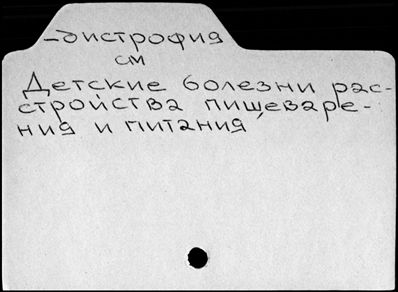 -дистрофия
см
Детские болезни рас-
стройства пищеваре-
ния и питания,